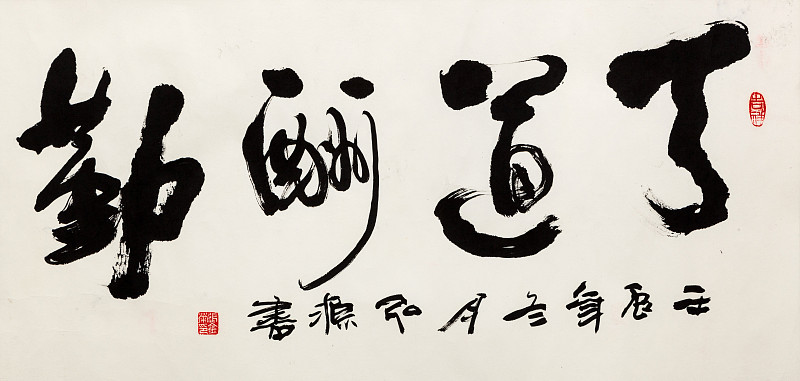 天道酬勤
壬辰年冬月弘源書